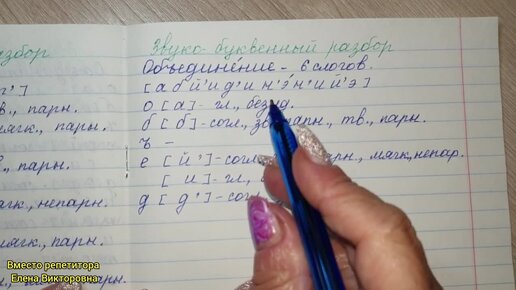 азбор
Звуко-буквенный разбор
Объединение – 6 слогов.
[а б й' и д' и н' э́ н' и й' э]
о [а] - гл., безуд.
б [б] - согл., тв., парн.
ъ –
е [й'] - согл., мягк., непар.
[и] - гл.,
д [д'] - согл.
в., парн.
мягк., парн.
, парн.
мягк., непарн.
мягк., парн.
парн.
Вместо репетитора
Елена Викторовна